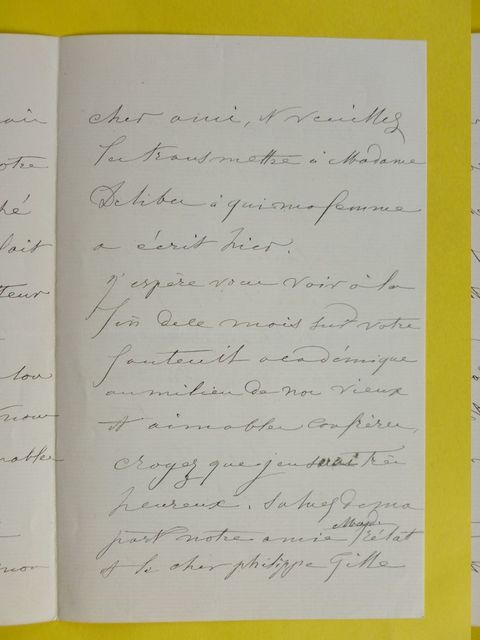 cher ami, & veuillez
les transmettre à Madame
Delibes à qui ma femme
a écrit hier.
J'espère vous voir à la
fin de ce mois sur votre
fauteuil académique
au milieu de nos vieux
et aimables confrères,
croyez que j'en serai très
heureux. saluez de ma
part notre amie Made
et le cher philippe Gille
oir
otre
ché
lait
teur
nous